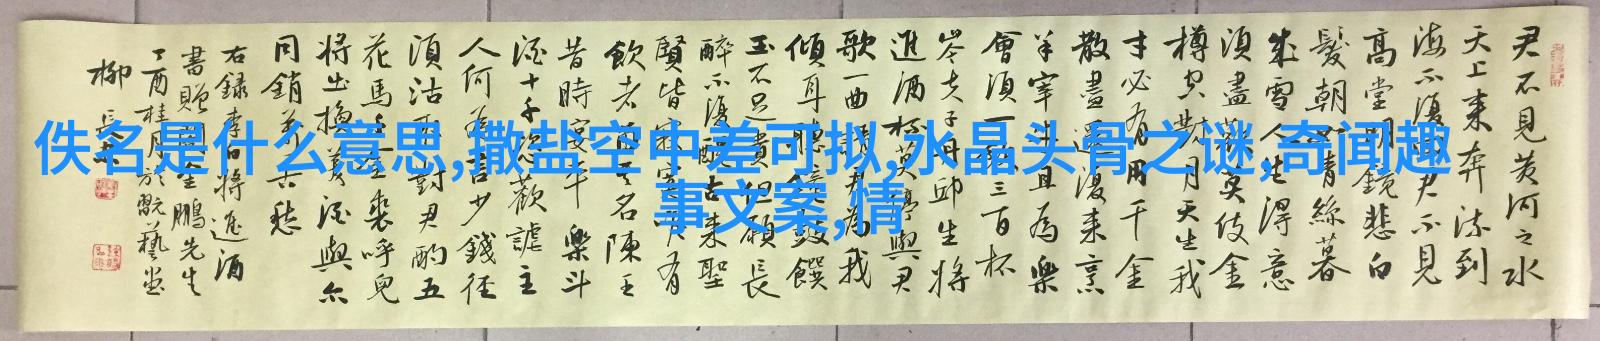 佚名是什么意思,撒盐空中差可拟,水晶头骨之谜,奇闻趣
事文案,情
君不見黄河之水
天上来奔流到
海不復回君不見
高堂明鏡悲白
髮朝如青絲暮
成雪人生得意
須盡歡莫使金
樽空對月天生我
才必有用千金
散盡還復来烹
羊宰牛且為樂
會須一飲三百杯
岑夫子丹邱生將
進酒杯莫停與君
歌一曲請君為我
傾耳聽鐘鼓饌
玉不足貴但願長
醉不復醒古来聖
賢皆寂寞唯有
飲者留其名陳王
昔時宴平樂斗
酒十千恣歡謔主
人何為言少錢徑
須沽取對君酌五
花馬千金裘呼兒
將出換美酒與尓
同銷萬古愁
右録李白將進酒
書贈鵬先生
丁酉桂月於翫藝堂
柳